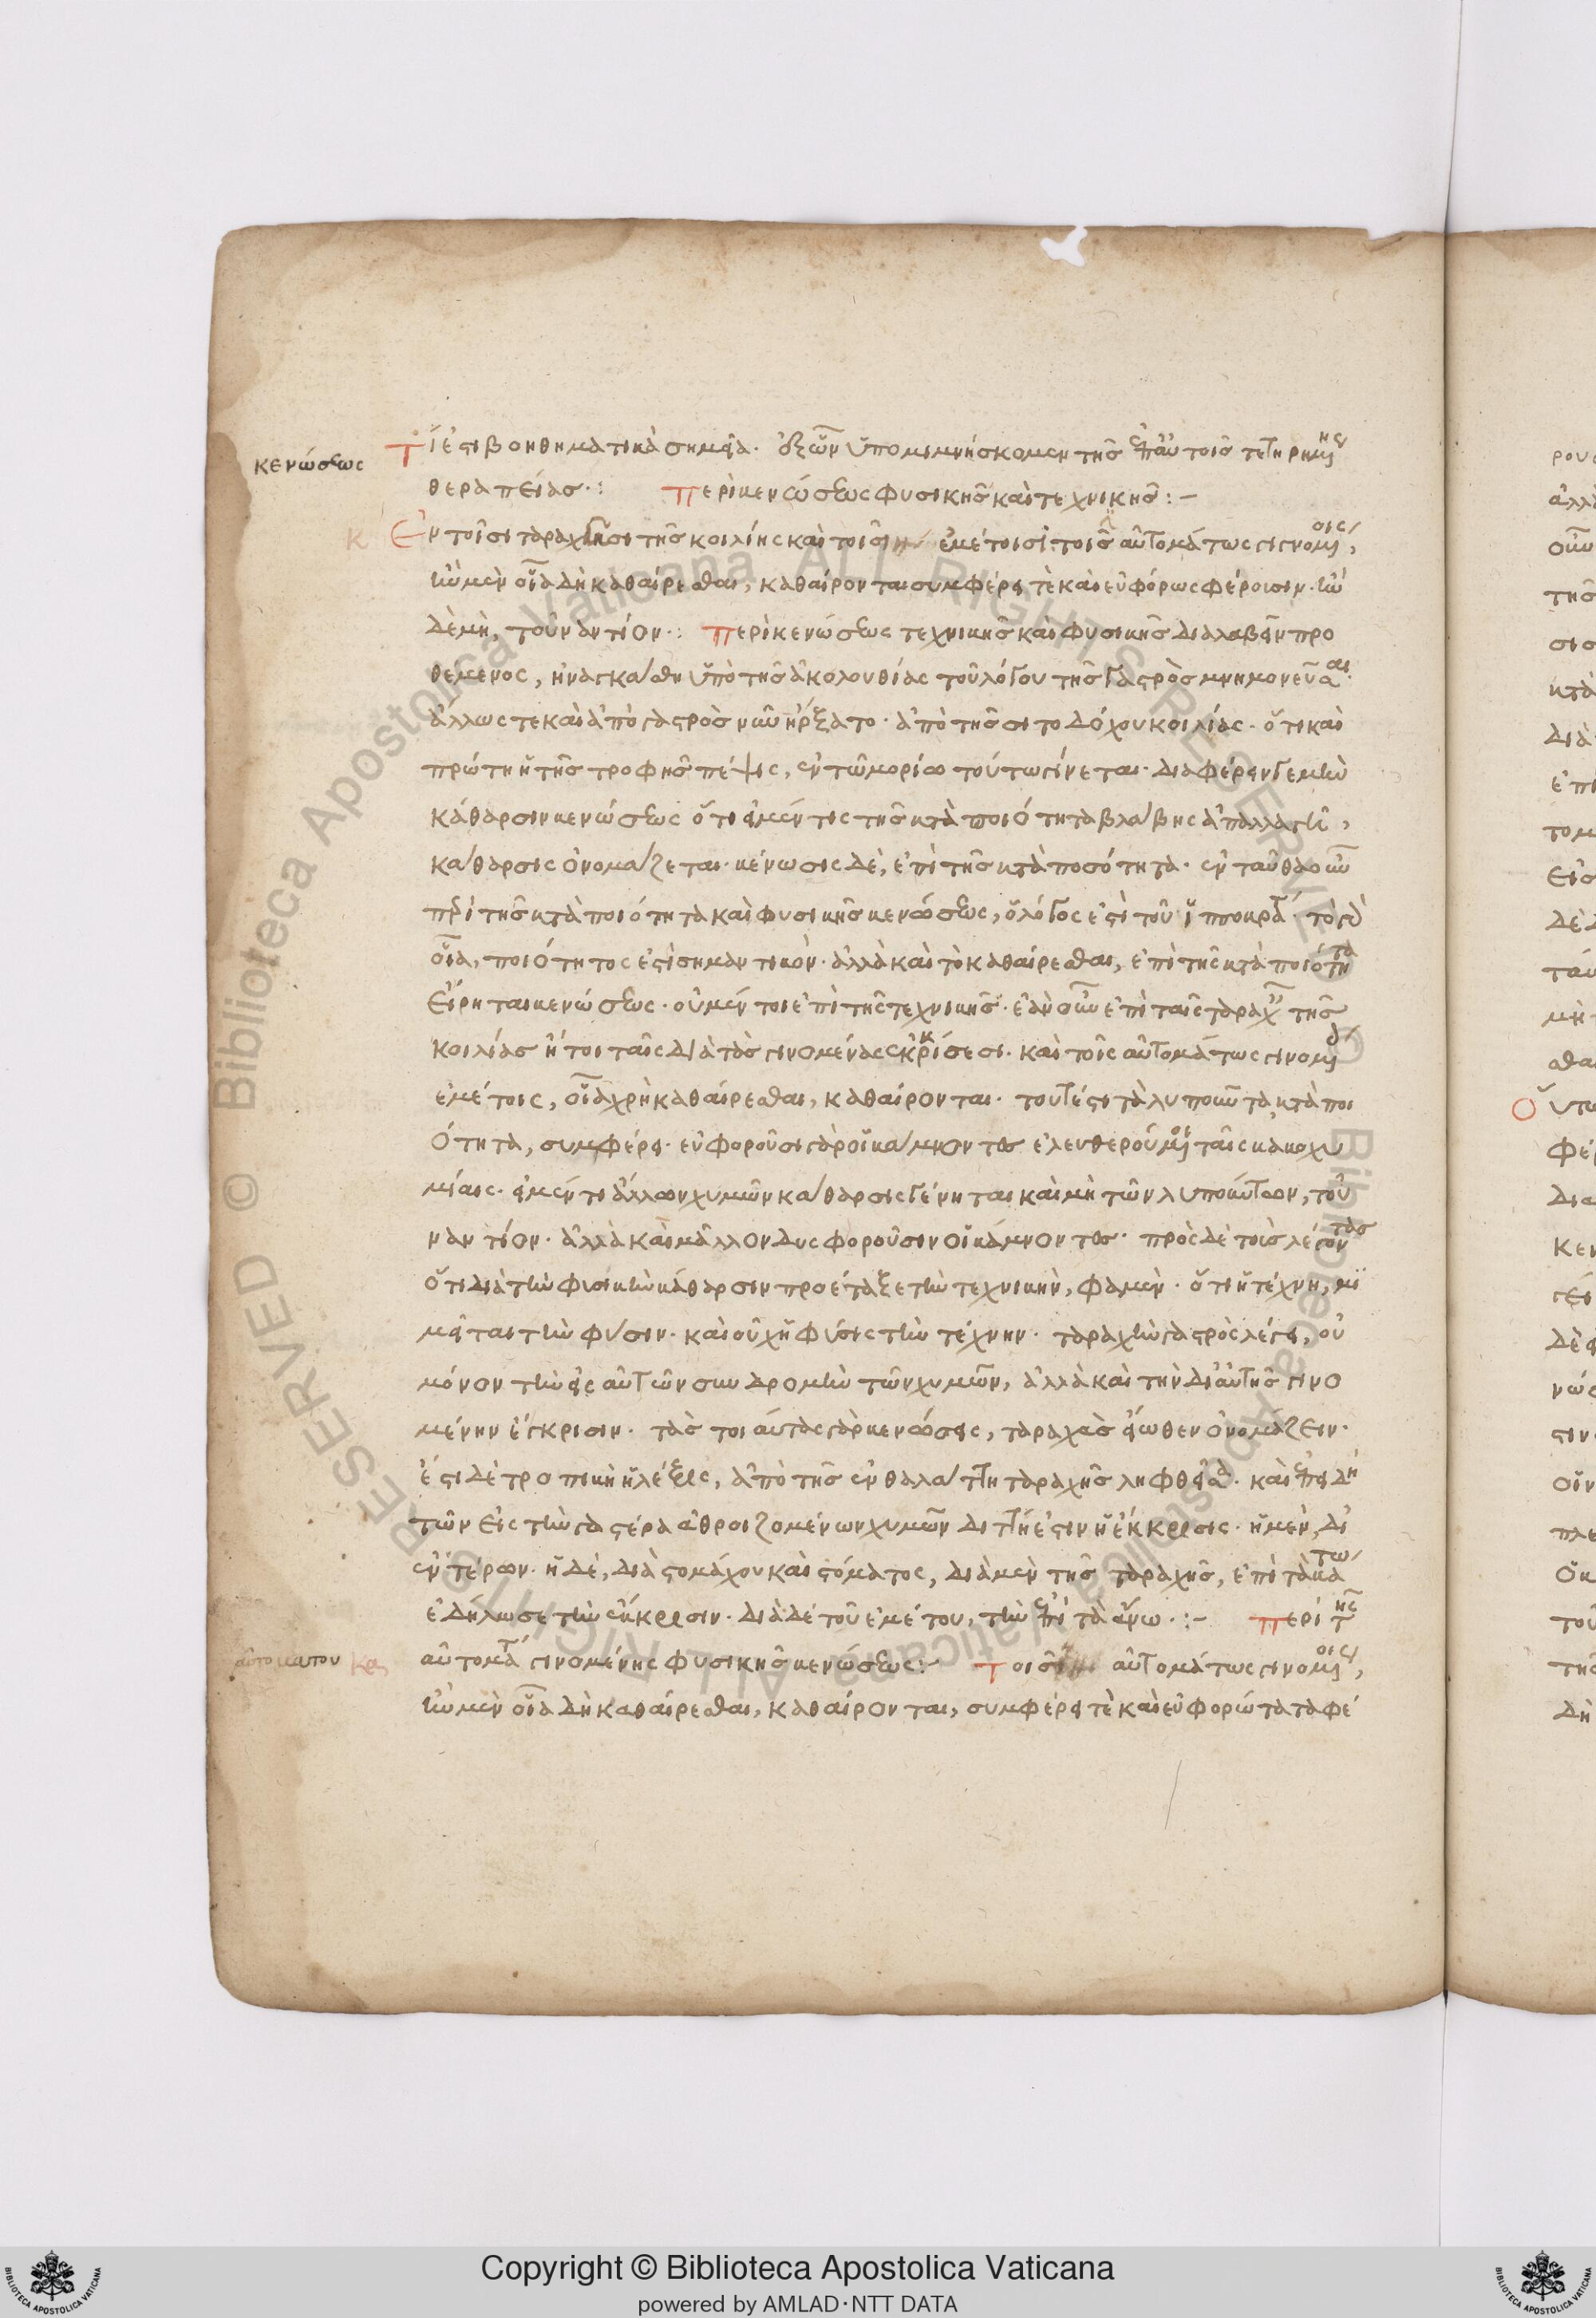 κενώσεως
Τί ἐστι βοηθηματικὰ σημεῖα· ἐξ ὧν ὑπομιμνήσκομεν τῆς ἐπ' αὐτοῖς τετηρημένης
θεραπείας·: Περὶ κενώσεως φυσικῆς καὶ τεχνικῆς:-
Ἐν τοῖσι ταραχῆσι τῆς κοιλίης καὶ τοῖσιν ἐμέτοισι τοῖς αὐτομάτως γιγνομένοις,
ἢν μὲν οἷα δὴ καθαίρεσθαι, καθαίρονται συμφέρει τὲ καὶ εὐφόρως φέροισιν· ἢν
δὲ μὴ, τοὐναντίον·: Περὶ κενώσεως τεχνικῆς καὶ φυσικῆς διαλαβεῖν προ
θέμενος, ἠναγκάσθη ὑπὸ τῆς ἀκολουθίας τοῦ λόγου τῆς γαστρὸς μνημονεῦσαι·
ἄλλως τε καὶ ἀπὸ γαστρὸς νῦν ἤρξατο· ἀπὸ τῆς σιτοδόχου κοιλίας· ὅτι καὶ
πρώτη ἡ τῆς τροφῆς πέψις, ἐν τῶ μορίω τούτω γίνεται· διαφέρειν γε μὴν
κάθαρσιν κενώσεως ὅτι εἰ μέν τις τῆς κατὰ ποιότητα βλάβης ἀπαλλαγῆ,
κάθαρσις ὀνομάζεται· κένωσις δὲ, ἐπὶ τῆς κατὰ ποσότητα· ἐνταῦθα οὖν
περὶ τῆς κατὰ ποιότητα καὶ φυσικῆς κενώσεως, ὁ λόγος ἐστὶ τοῦ ἱπποκράτους· τὸ γὰρ
οἷα, ποιότητος ἐστὶ σημαντικόν· ἀλλὰ καὶ τὸ καθαίρεσθαι, ἐπὶ τῆς κατὰ ποιότητα
εἴρηται κενώσεως· οὐ μέν τοι ἐπὶ τῆς τεχνικῆς· ἐὰν οὖν ἐπὶ ταῖς ταραχαῖς τῆς
κοιλίας ἤτοι ταῖς διὰ τὰς γινομένας ἐκκρίσεσι· καὶ τοῖς αὐτομάτως γινομένοις
ἐμέτοις, οἷα χρὴ καθαίρεσθαι, καθαίρονται· τουτέστι τὰ λυποῦντα κατὰ ποι
ότητα, συμφέρει· εὐφοροῦσι γὰρ οἱ κάμνοντες ἐλευθερούμενοι ταῖς κακοχυ
μίαις· εἰ μέντι ἄλλων χυμῶν κάθαρσις γένηται καὶ μὴ τῶν λυπούντων, τοὐ
ναντίον· ἀλλὰ καὶ μᾶλλον δυσφοροῦσιν οἱ κάμνοντες· πρὸς δὲ τοὺς λέγοντας
ὅτι διὰ τὴν φυσικὴν κάθαρσιν προέταξε τὴν τεχνικὴν, φαμὲν· ὅτι ἡ τέχνη, μι
μεῖται τὴν φύσιν· καὶ οὐχ ἡ φύσις τὴν τέχνην· ταραχὴν γαστρὸς λέγει, οὐ
μόνον τὴν εἰς αὐτῶν συνδρομὴν τῶν χυμῶν, ἀλλὰ καὶ τὴν δι' αὐτῆς γινο
μένην ἔκκρισιν· τὰς τοιαύτας γὰρ κενώσεις, ταραχὰς εἴωθεν ὀνομάζειν·
ἔστι δὲ τροπικὴ ἡ λέξις, ἀπὸ τῆς ἐν θαλάττη ταραχῆς ληφθεῖσα· καὶ ἐπειδὴ
τῶν εἰς τὴν γαστέρα ἀθροιζομένων χυμῶν διττή ἐστιν ἡ ἔκκρισις· ἡ μὲν, δι'
ἐντέρων· ἡ δὲ, διὰ στομάχου καὶ στόματος, διὰ μὲν τῆς ταραχῆς, ἐπὶ τὰ κάτω
ἐδήλωσε τὴν ἔκκρισιν· διὰ δὲ τοῦ ἐμέτου, τὴν ἐπὶ τὰ ἄνω·:- Περὶ τῆς
αὐτομάτου
αὐτομάτως γινομένης φυσικῆς κενώσεως:- Τοῖσι αὐτομάτως γινομένοις,
ἢν μὲν οἷα δὴ καθαίρεσθαι, καθαίρονται, συμφέρει τὲ καὶ εὐφορώτατα φέ
Copyright © Biblioteca Apostolica Vaticana
powered by AMLAD·NTT DATA